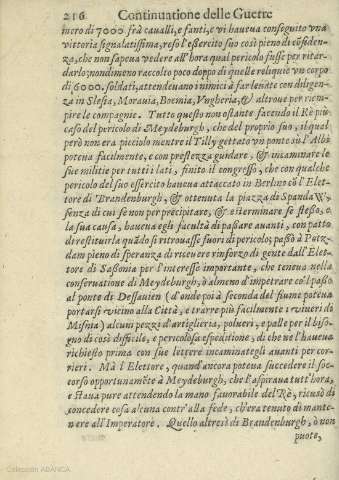 216 Continuatione delle Guerre
mero di 7000 frà caualli, e fanti, e vi haueua conseguito vna
vittoria segnalatissima, reso l'essercito suo così pieno di cõfiden-
za, che non sapeua vedere all'hora qual pericolo fusse per ritar-
darlo; nondimeno raccolto poco doppo di quelle reliquie vn corpo
di 6000. soldati, attendeuano i nimici à far leuate con diligen-
za in Slesia, Morauia, Boemia, Vngheria, & altroue per riem-
pire le compagnie. Tutto questo non ostante facendo il Rè più
caso del pericolo di Meydeburgh, che del proprio suo, il qual
però non era piccolo mentre il Tilly gettato vn ponte sù l'Albi
poteua facilmente, e con prestezza guidare, & incaminare le
sue militie per tutti i lati, finito il congresso, che con qualche
pericolo del suo essercito haueua attaccato in Berlino cõ l'Elet-
tore di Brandenburgh, & ottenuta la piazza di Spandaw,
senza di cui se non per precipitare, & esterminare se stesso, e
la sua causa, haueua egli facultà di passare auanti, con patto
di restituirla quãdo si ritrouasse fuori di pericolo; passò à Putz-
dam pieno di speranza di riceuere rinforzo di gente dall'Elet-
tore di Sassonia per l'interesse importante, che teneua nella
conseruatione di Meydeburgh, ò almeno d'impetrare cõ'l passo
al ponte di Dessauien (d'onde poi à seconda del fiume poteua
portarsi vicino alla Città, e trarre più facilmente i viueri di
Misnia) alcuni pezzi d'artiglieria, polueri, e palle per il biso-
gno di così difficile, e pericolosa espeditione, di che ne l'haueua
richiesto prima con sue lettere incaminategli auanti per cor-
rieri. Mà l'Elettore, quand'ancora poteua succedere il soc-
corso opportunamẽte à Meydeburgh, che l'aspiraua tutt'hora,
e staua pure attendendo la mano fauorabile del Rè, ricusò di
concedere cosa alcuna contr'alla fede, ch'era tenuto di mante-
nere all'Imperatore. Quello altresì di Brandenburgh, ò non
puote,
Colección ABANCA